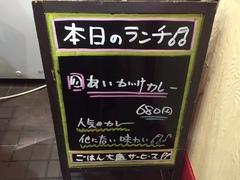 本日のランチ
あいがけカレー
680円
人気のカレー
他にない味わい
ごはん大盛サービス